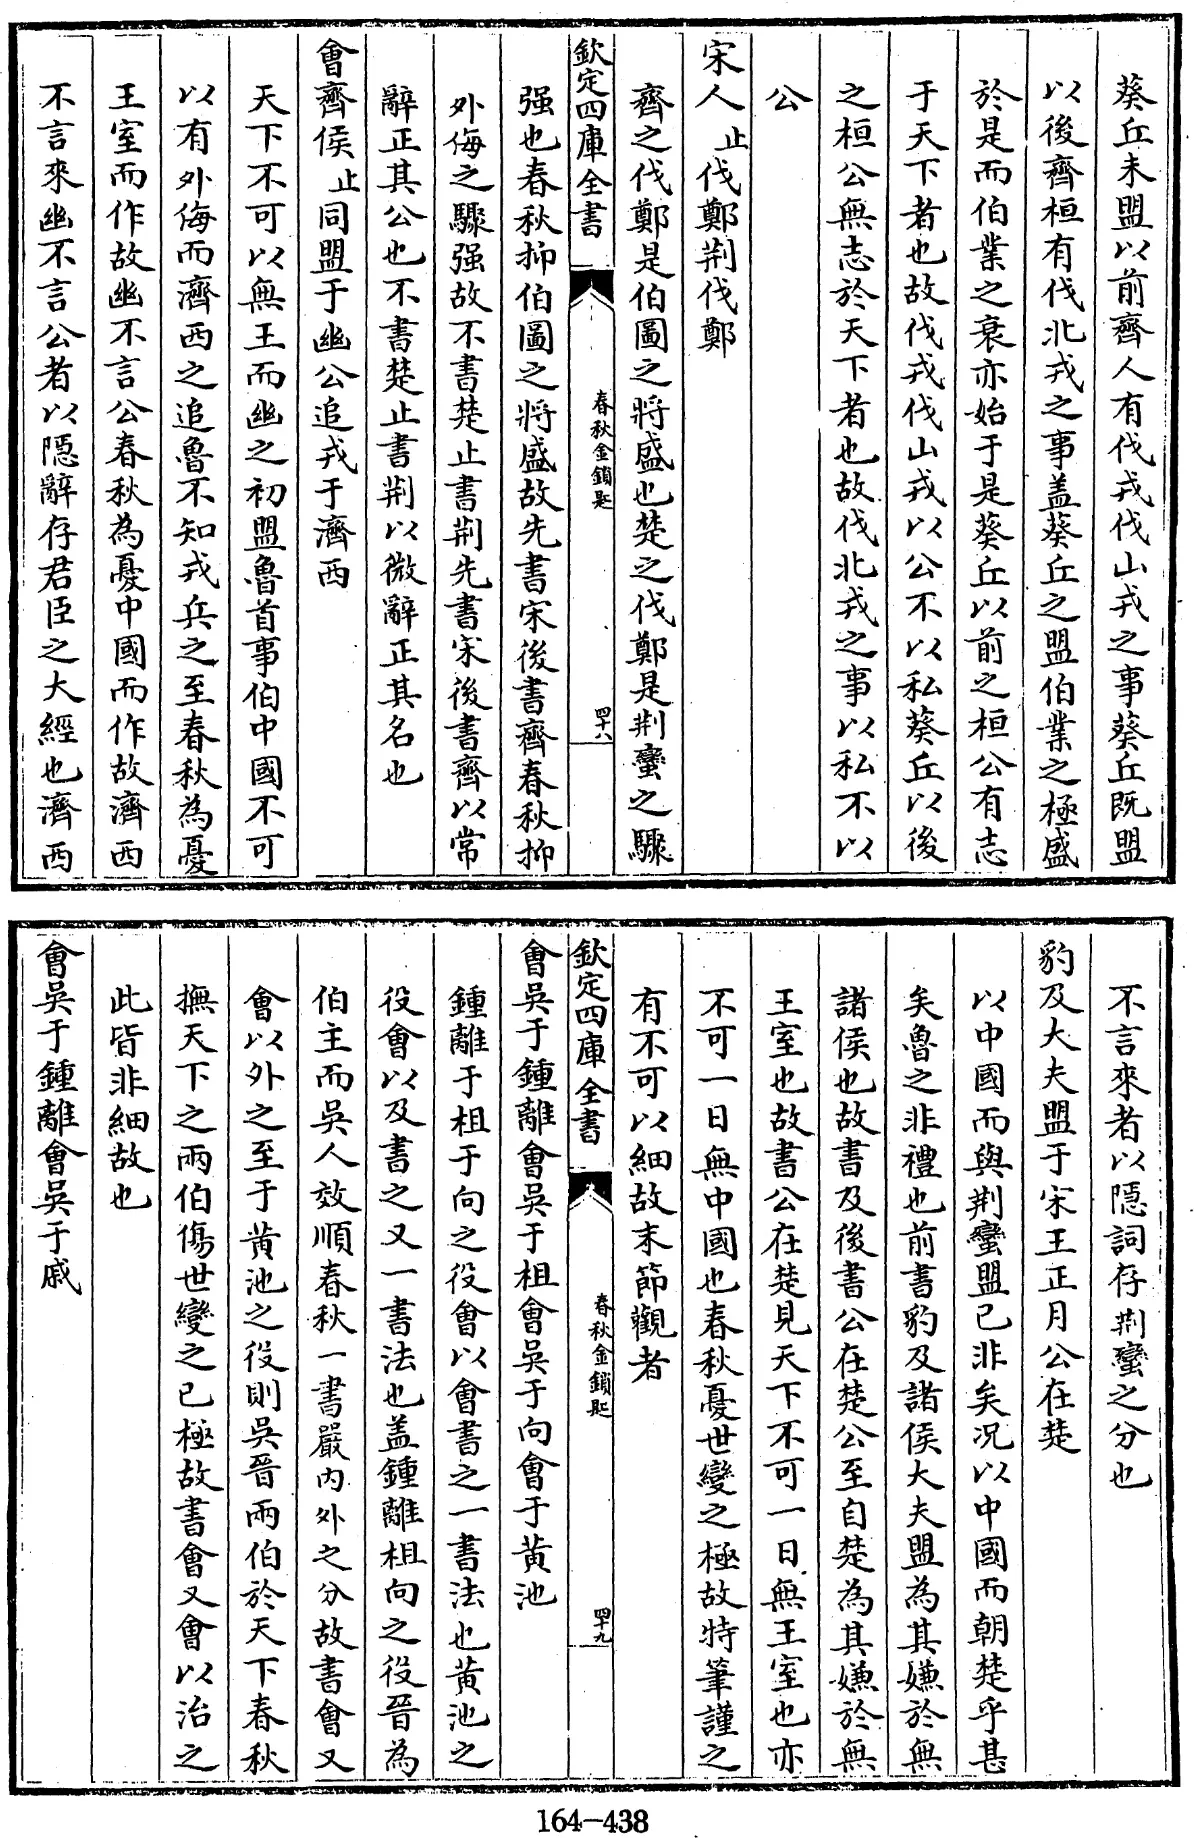 葵丘未盟以前齊人有伐戎伐山戎之事葵丘既盟
以後齊桓有伐北戎之事盖葵丘之盟伯業之極盛
於是而伯業之衰亦始于是葵丘以前之桓公有志
于天下者也故伐戎伐山戎以公不以私葵丘以後
之桓公無志於天下者也故伐北戎之事以私不以
公
宋人止伐鄭荆伐鄭
齊之伐鄭是伯圖之將盛也楚之伐鄭是荆蠻之驟
欽定四庫全書
春秋金鎖匙
四十八
强也春秋抑伯圖之將盛故先書宋後書齊春秋抑
外侮之驟强故不書楚止書荆先書宋後書齊以常
辭正其公也不書楚止書荆以微辭正其名也
會齊侯止同盟于幽公追戎于濟西
天下不可以無王而幽之初盟魯首事伯中國不可
以有外侮而濟西之追魯不知戎兵之至春秋為憂
王室而作故幽不言公春秋為憂中國而作故濟西
不言來幽不言公者以隠辭存君臣之大經也濟西
不言來者以隠詞存荆蠻之分也
豹及大夫盟于宋王正月公在楚
以中國而與荆蠻盟已非矣况以中國而朝楚乎甚
矣魯之非禮也前書豹及諸侯大夫盟為其嫌於無
諸侯也故書及後書公在楚公至自楚為其嫌於無
王室也故書公在楚見天下不可一日無王室也亦
不可一日無中國也春秋憂世變之極故特筆謹之
有不可以細故末節觀者
欽定四庫全書
春秋金鎖匙
四十九
會吳于鍾離會吳于柤會吳于向會于黄池
鍾離于柤于向之役會以會書之一書法也黄池之
役會以及書之又一書法也盖鍾離柤向之役晉為
伯主而吳人效順春秋一書嚴内外之分故書會又
會以外之至于黄池之役則吳晉兩伯於天下春秋
撫天下之兩伯傷世變之已極故書會又會以治之
此皆非細故也
會吳于鍾離會吳于戚
164-438